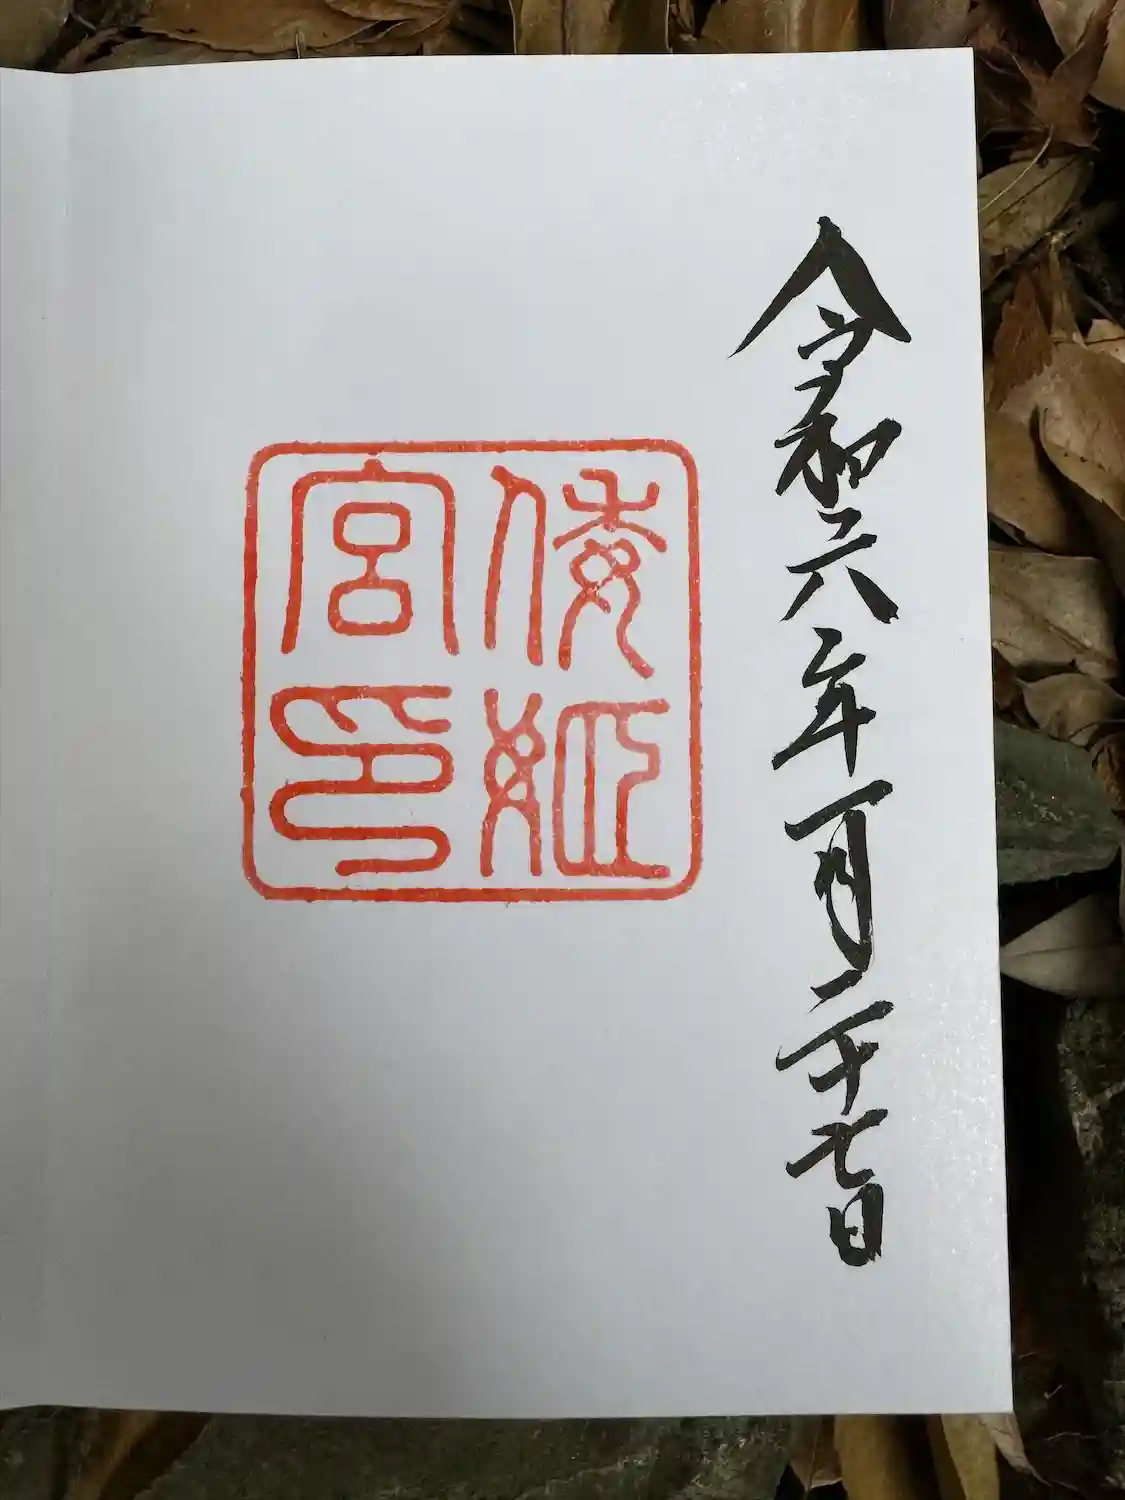 令和六年一月二十七日
倭姫
宮印